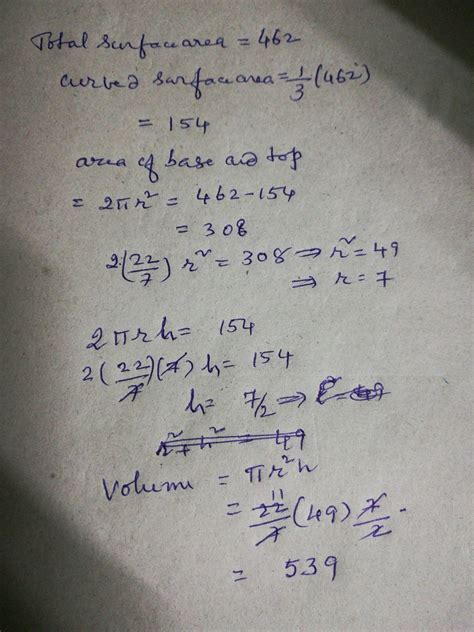 Total surface area = 462
curved surface area = 1/3 (462)
= 154
area of base and top
= 2πr² = 462-154
= 308
2(22/7) r² = 308 ⇒ r² = 49
⇒ r = 7
2πrh = 154
2(22/7)(7) h = 154
h = 7/2 ⇒
r² + h² = 49
Volume = πr²h
= 22/7 (49) 7/2 .
11
= 539